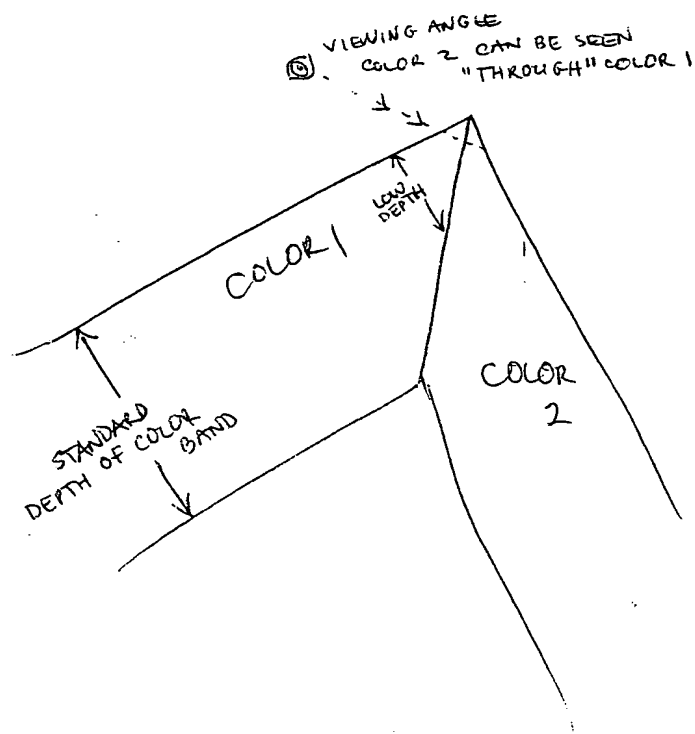 VIEWING ANGLE
COLOR 2 CAN BE SEEN
"THROUGH" COLOR 1
LOW
DEPTH
COLOR 1
COLOR
2
STANDARD
DEPTH OF COLOR
BAND